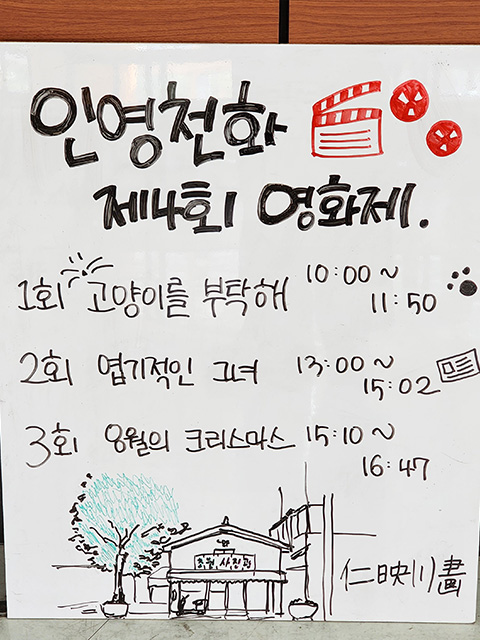 인영천화
제4회 영화제.
1회 고양이를 부탁해 10:00~
11:50
2회 엽기적인 그녀 13:00~
15:02
3회 8월의 크리스마스 15:10~
16:47
초원 사진관
仁映川畵